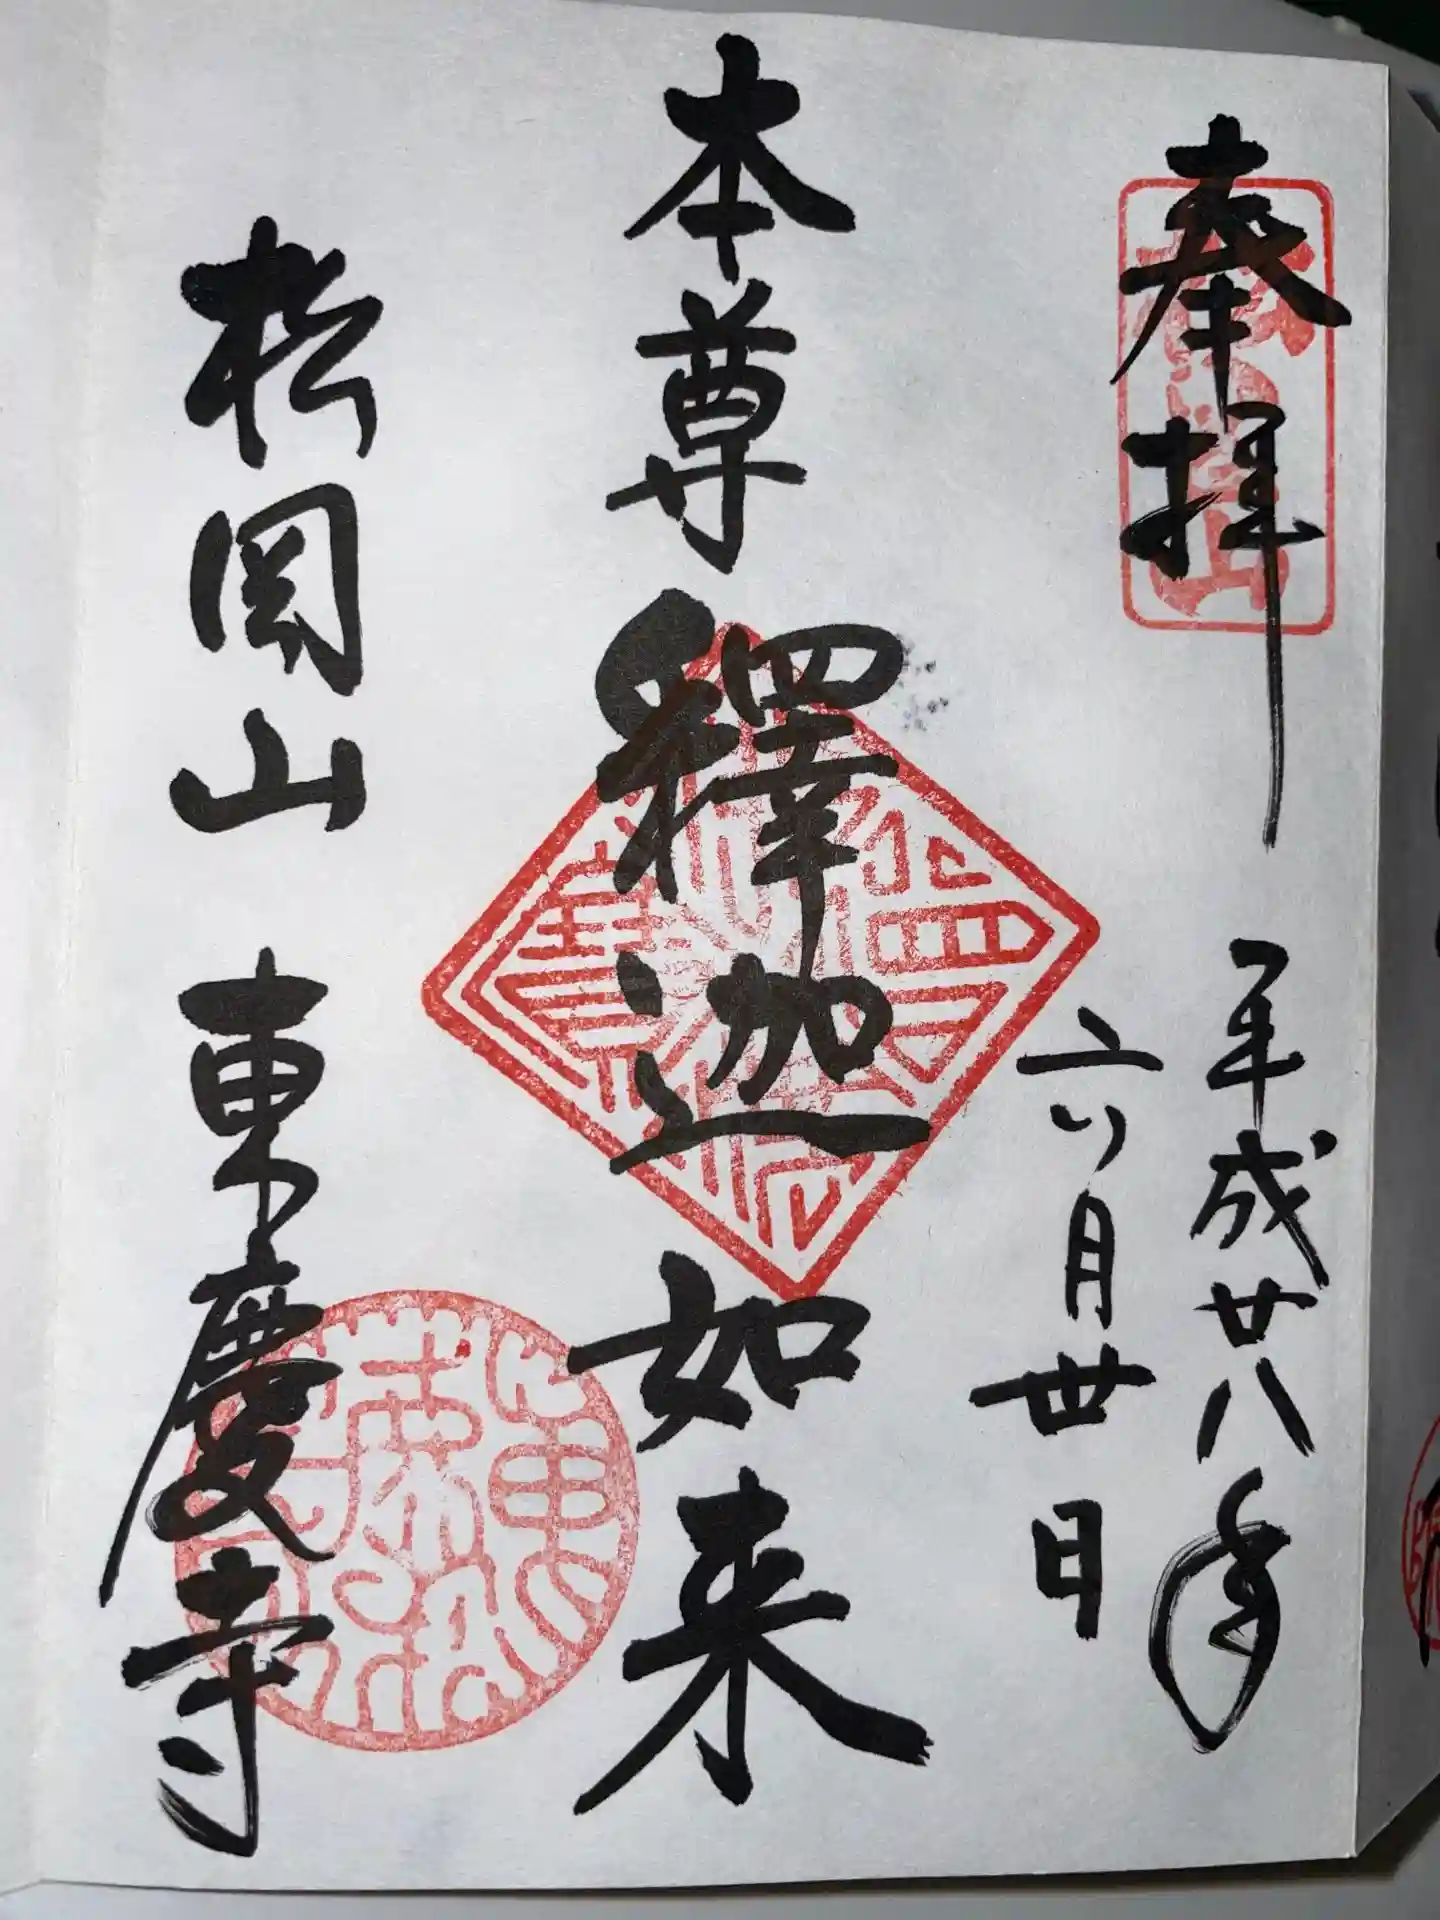 奉拝
平成廿八年
六月卅日
本尊釋迦如来
松岡山 東慶寺
松岡山